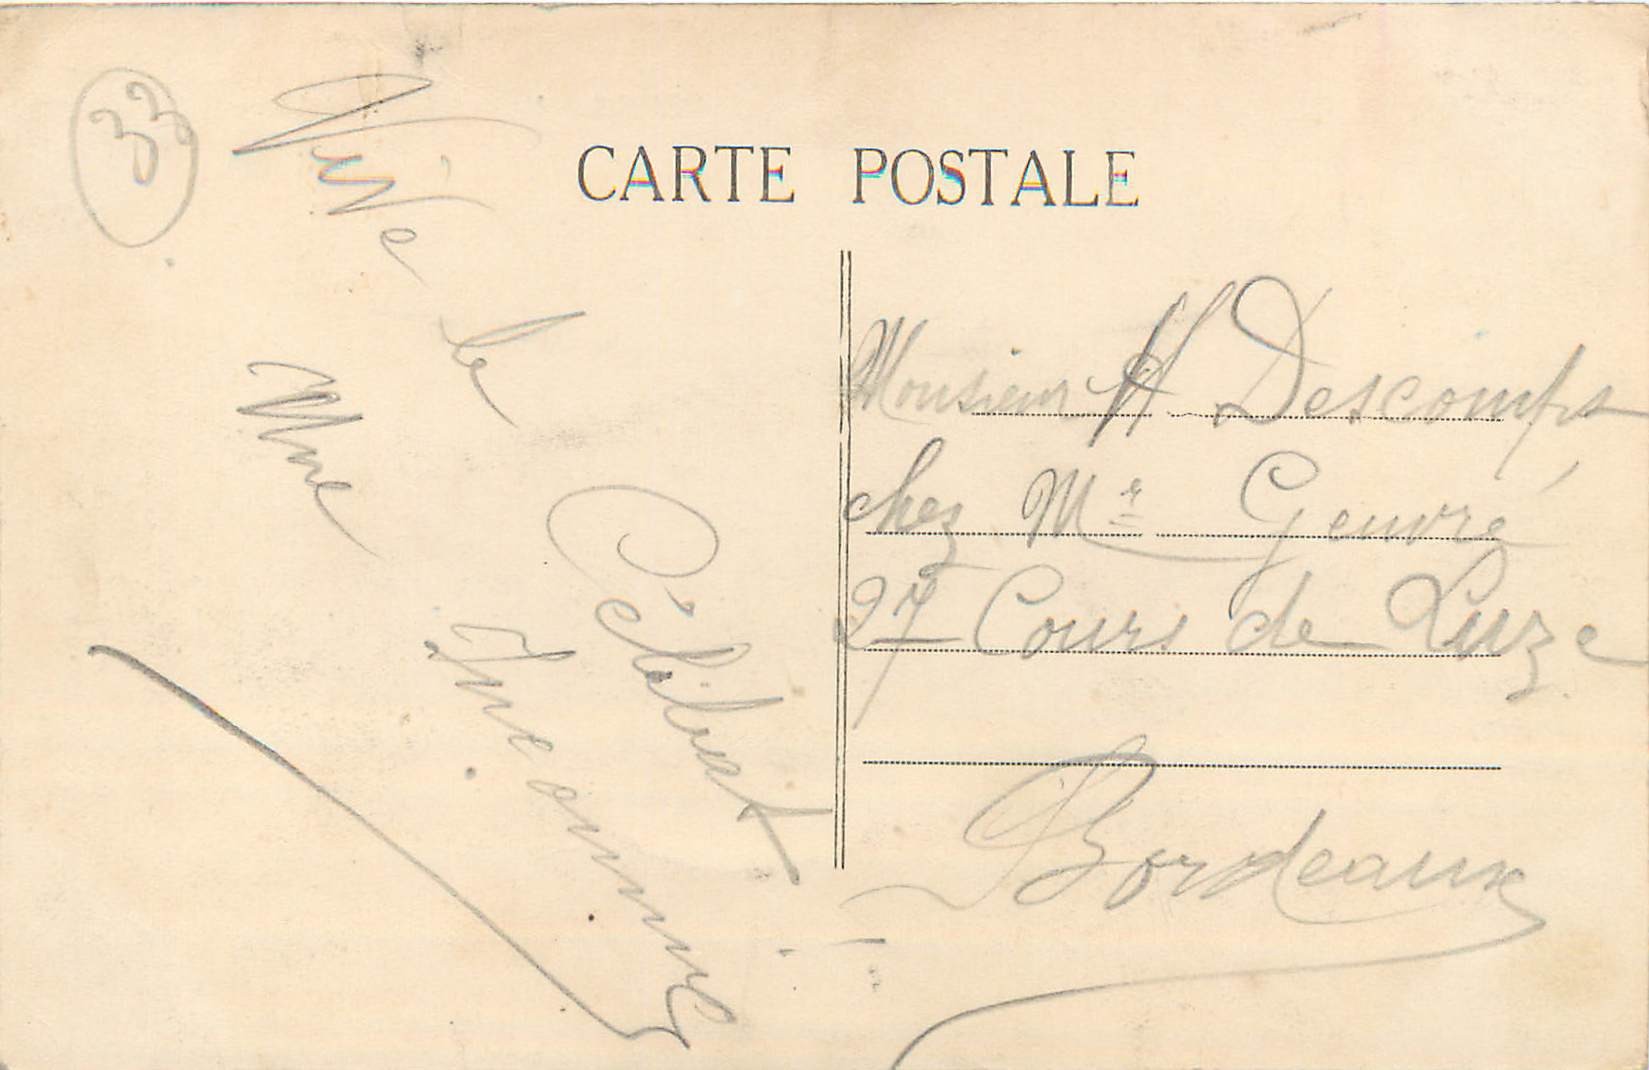 33
CARTE POSTALE
Vive le
Célibat !
Une
Inconnue
Monsieur H Descomps
chez Mr Genvré
27 Cours de Luze
Bordeaux